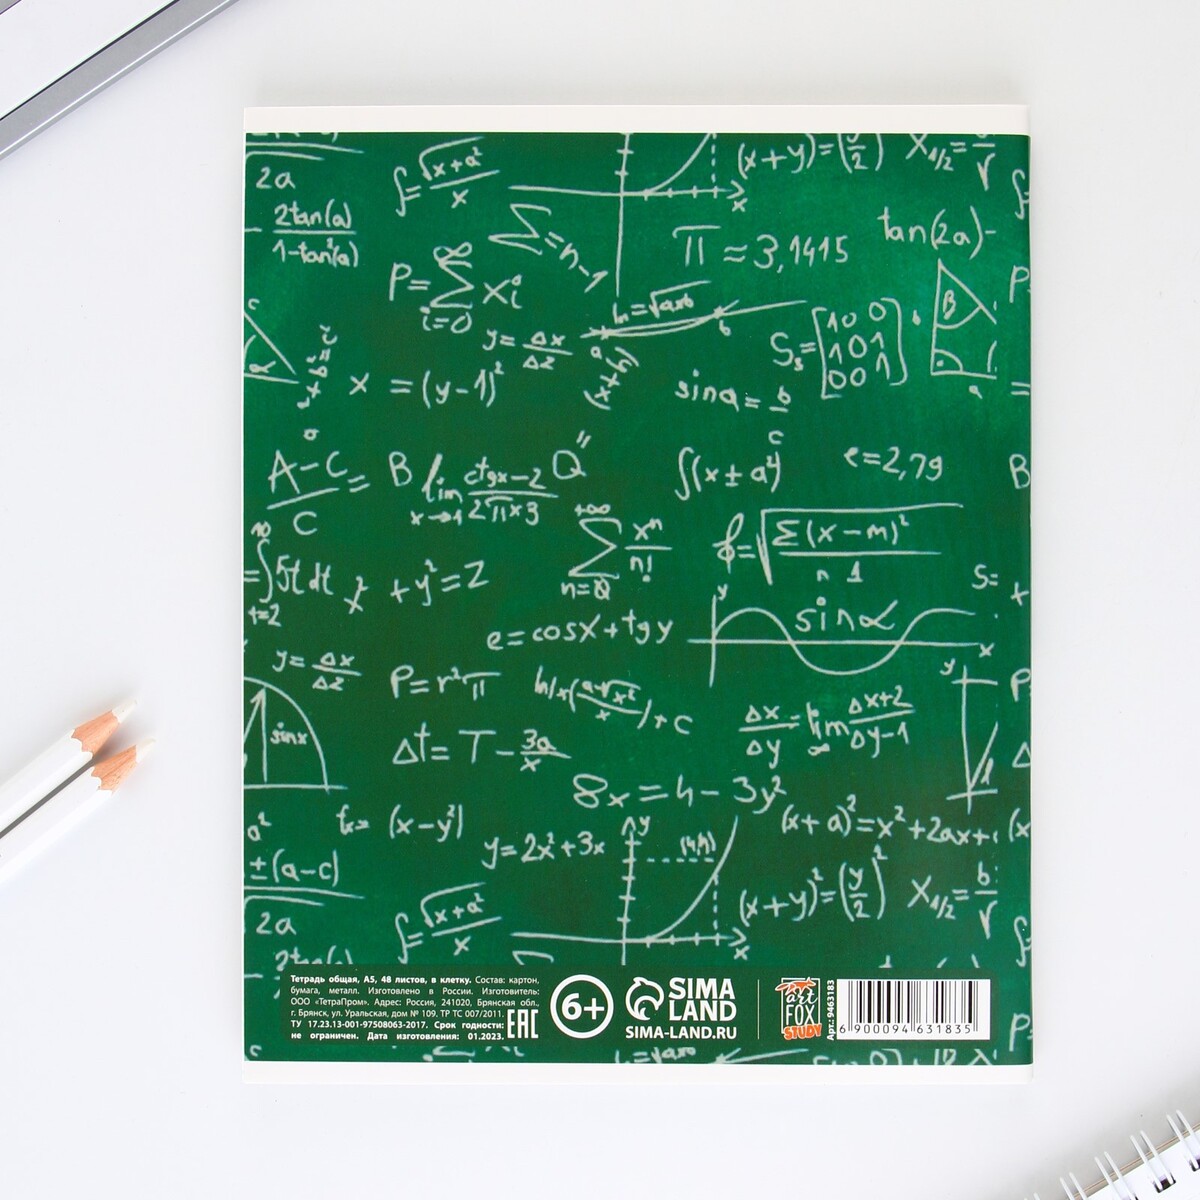 2a
∫=√(x+a²)/x
(x+y)=(y/2)
X₁/₂=
2tan(a)/1-tan²(a)
Σ=n-1
π≈3,1415
tan(2a)-
P=Σ xi
∞
i=0
ln=√axb
y=Δx/Δz
a
b
Sₛ=[10 0
101
001]
B
x =(y-1)²
sina=b/c
α
A-C/C=B
lim ctgx-2/2πx3
x→1
Q"
∫(x±a²)
e=2,79
B
10
=∫5tdt
t=2
x² +y²=Z
+∞
Σ xⁿ/n!
n=0
=√Σ(x-m)²/n 1
S=
e=cosx+tgy
y
sinα
x
y=Δx/Δz
P=r²π
ln/x(a-√x²/x)+c
Δx/Δy=lim Δx+2/Δy-1
∞
y
sinx
Δt=T-3a/x
8x=4-3y²
a²
±(a-c)
2a
(x-y²)
y=2x²+3x
y
x
(x+a)²=x²+2ax+
(x+y)²=(y/2)²
X₁/₂=b/√
∫=√(x+a²)/x
2tan(a)
Тетрадь общая, А5, 48 листов, в клетку. Состав: картон,
бумага, металл. Изготовлено в России. Изготовитель:
ООО «ТетраПром». Адрес: Россия, 241020, Брянская обл.,
г. Брянск, ул. Уральская, дом № 109, ТР ТС 007/2011.
ТУ 17.23.13-001-97508063-2017. Срок годности:
не ограничен. Дата изготовления: 01.2023.
EAC
6+
SIMA
LAND
SIMA-LAND.RU
art
FOX
STUDY
Арт.: 9463183
6 900094 631835